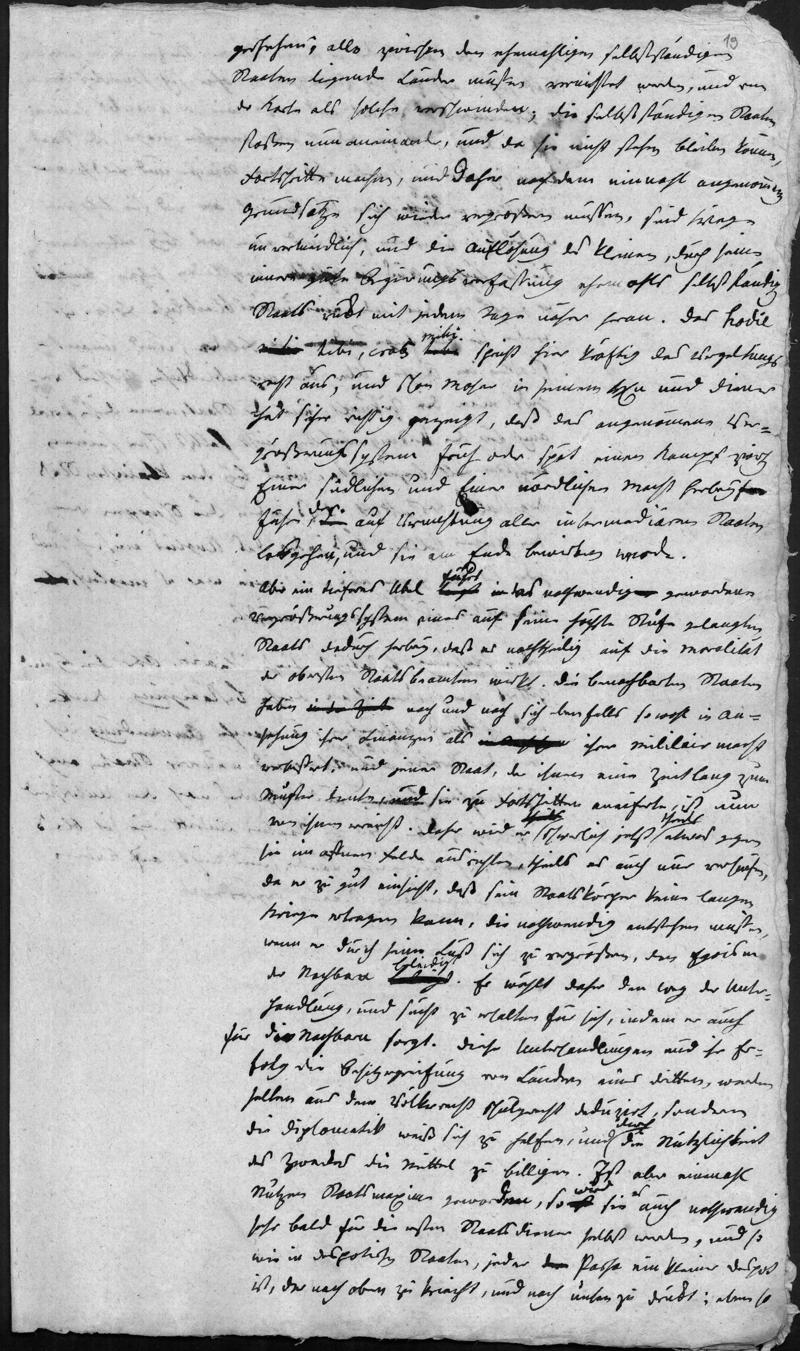 19
geschehen, alle zwischen den ehemahligen selbstständigen
Staaten liegende Länder müssen vernichtet werden, und von
der Karte als solche verschwinden; die selbstständigen Staaten
stossen nun aneinander, und da sie nicht stehen bleiben können,
Fortschritte machen, und daher nach dem einmahl angenommenen
Grundsatze sich wieder vergrössern müssen, sind Kriege
unvermeidlich, und die Auflösung des kleinen, durch seine
innere gute Regierungsverfassung ehemahls selbstständigen
Staats rückt mit jedem Tage näher heran. Das hodie
mihi tibi, cras tibi mihi. spricht hier kräftig das Vergeltungs
recht aus; und schon Moser in seinem Herrn und Diener
hat sehr richtig gezeigt, daß das angenommene Ver-
grösserungssystem früh oder spät einen Kampf zwischen
Einer südlichen und Einer nördlichen Macht herbey
führe, der auf Vernichtung aller intermediären Staaten
losgehen, und sie am Ende bewirken werde.
Aber ein tieferes Übel führt das nothwendig gewordene
Vergrösserungssystem eines auf seine höchste Stufe gelangten
Staats dadurch herbey, daß es nachtheilig auf die Moralität
der obersten Staatsbeamten wirkt. Die benachbarten Staaten
haben nach und nach sich ebenfalls sowohl in An-
sehung ihrer Finanzen als ihrer Militair macht
verbessert; und jener Staat, der ihnen eine Zeitlang zum
Muster diente, und sie zu Fortschritten aneiferte, ist nun
von ihnen erreicht. Daher wird er theils schwerlich jetzt etwas gegen
sie im offenen Felde ausrichten, theils es auch nur versuchen,
da er zu gut einsieht, daß sein Staatskörper keine langen
Kriege ertragen kann, die nothwendig entstehen müssen,
wenn er durch seine Lust sich zu vergrössern, den Egoism
der Nachbarn beleidigt. Er wählt daher den Weg der Unter-
handlung, und sucht zu erhalten für sich, indem er auch
für die Nachbarn sorgt. Diese Unterhandlungen und ihr Er-
folg die Besitzergreifung von Ländern eines dritten, werden
selten aus dem Völkerrecht deduzirt, sondern
die Diplomatik weiß sich zu helfen, und durch die Nützlichkeit
des Zweckes die Mittel zu billigen. Ist aber einmahl
Nutzen Staatsmaxime geworden, so wird sie es auch nothwendig
sehr bald für die ersten Staatsdiener selbst werden, und so
wie in despotischen Staaten, jeder Passa ein kleiner Despot
ist, der nach oben zu kriecht, und nach unten zu drückt; eben so